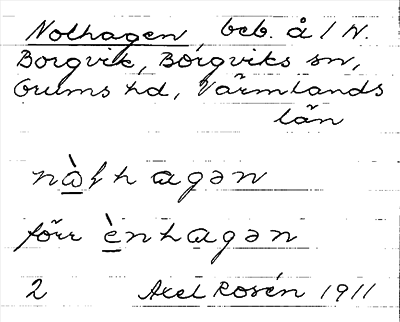 Nolhagen, beb. å 1 N.
Borgvik, Borgviks sn,
Grums hd, Värmlands
län
nòlhagən
förr ènhagən
2 Axel Rosén 1911